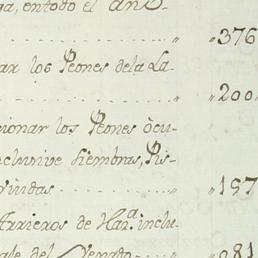 ga, entodo el año
" " 376
ar los Peones dela La-
" " 200
cionar los Peones ocu-
nclusive siembras, Pis-
vindas " " 157
Arrieros de Har.ª inclu-
ale del Venado " " 081